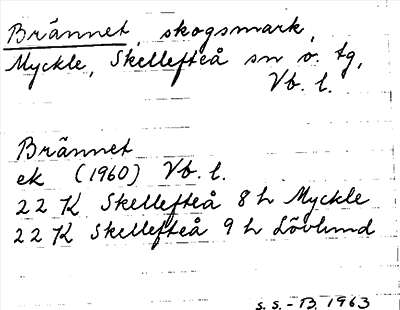 Brännet, skogsmark,
Myckle, Skellefteå sn o. tg,
Vb. l.
Brännet
ek (1960) Vb. l.
22 K Skellefteå 8 h Myckle
22 K Skellefteå 9 h Lövlund
s.s. - B. 1963